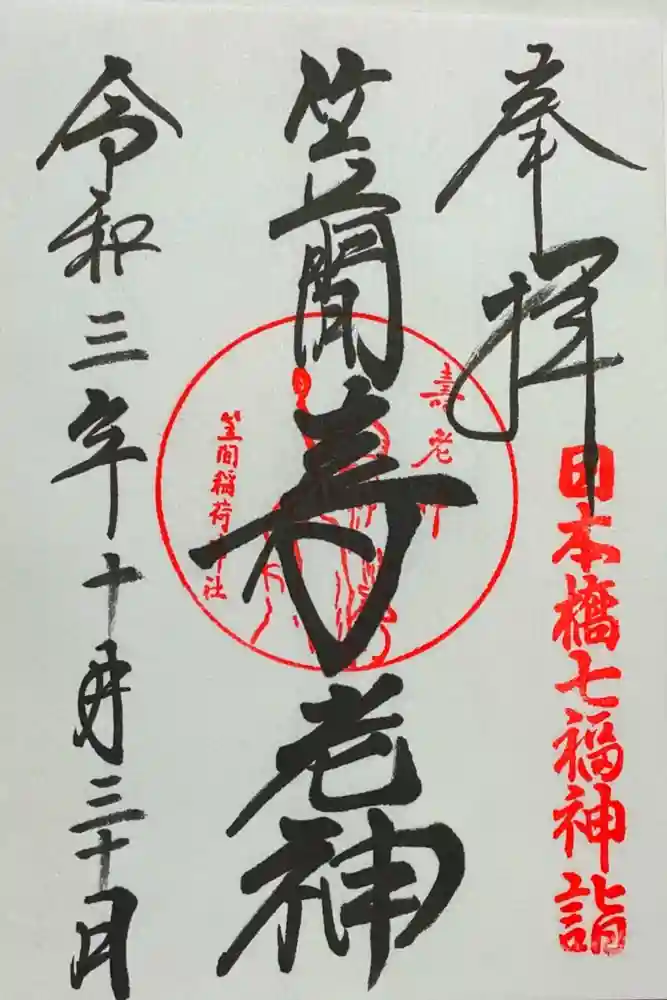 奉拝
日本橋七福神詣
笠間
寿老神
壽老
笠間稲荷神社
令和三年十月三十日